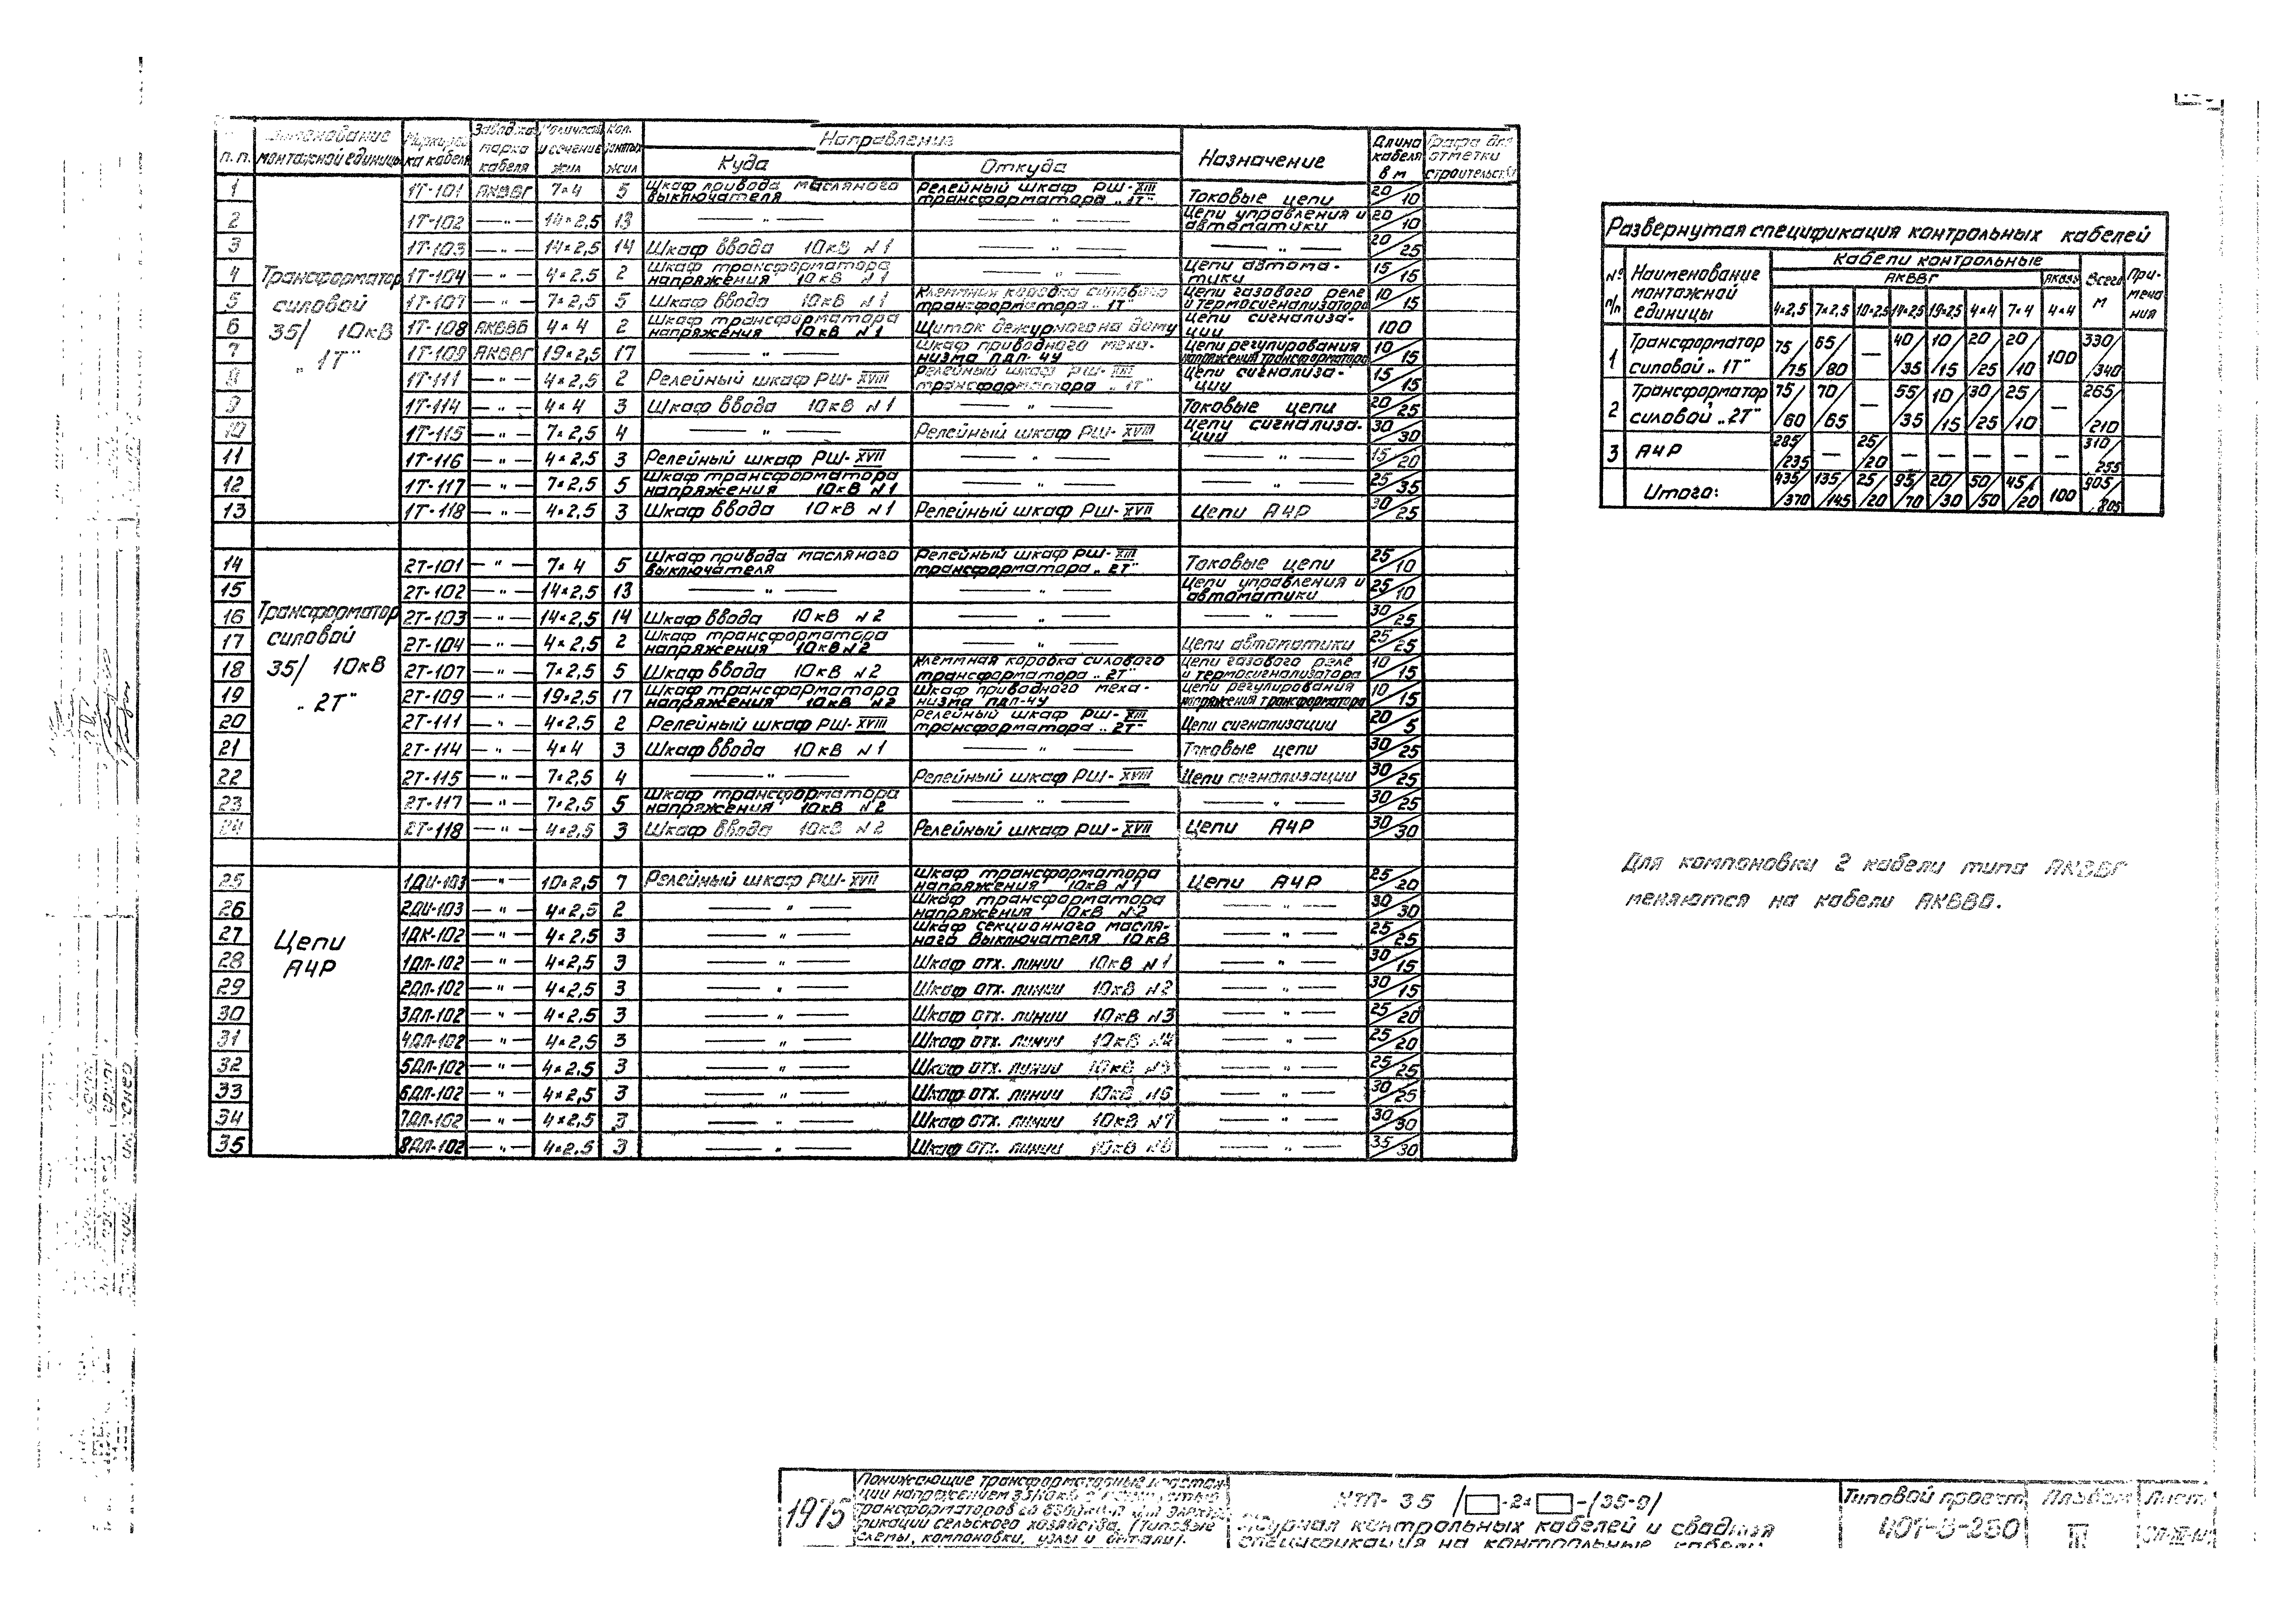 п.п. | Наименование монтажной единицы | Маркировка кабеля | Заводская марка кабеля | Количество и сечение жил | Кол. занятых жил | Направление: Куда | Откуда | Назначение | Длина кабеля в м | Графа для отметки строительства
1 | Трансформатор силовой 35/10кВ „1Т" | 1Т-101 | АКВВГ | 7×4 | 5 | Шкаф привода масляного выключателя | Релейный шкаф РШ-XIII трансформатора „1Т" | Токовые цепи | 20/10
2 | 1Т-102 | —"— | 14×2,5 | 13 | —"— | —"— | Цепи управления и автоматики | 20/10
3 | 1Т-103 | —"— | 14×2,5 | 14 | Шкаф ввода 10кВ №1 | —"— | —"— | 20/25
4 | 1Т-104 | —"— | 4×2,5 | 2 | Шкаф трансформатора напряжения 10кВ №1 | —"— | Цепи автоматики | 15/15
5 | 1Т-107 | —"— | 7×2,5 | 5 | Шкаф ввода 10кВ №1 | Клеммная коробка силового трансформатора „1Т" | Цепи газового реле и термосигнализатора | 10/15
6 | 1Т-108 | АКВВБ | 4×4 | 2 | Шкаф трансформатора напряжения 10кВ №1 | Щиток дежурного на дому | Цепи сигнализации | 100
7 | 1Т-109 | АКВВГ | 19×2,5 | 17 | —"— | Шкаф приводного механизма ПДП-4У | Цепи регулирования напряжения трансформатора | 10/15
8 | 1Т-111 | —"— | 4×2,5 | 2 | Релейный шкаф РШ-XVIII | Релейный шкаф РШ-XIII трансформатора „1Т" | Цепи сигнализации | 15/15
9 | 1Т-114 | —"— | 4×4 | 3 | Шкаф ввода 10кВ №1 | —"— | Токовые цепи | 20/25
10 | 1Т-115 | —"— | 7×2,5 | 4 | —"— | Релейный шкаф РШ-XVIII | Цепи сигнализации | 30/30
11 | 1Т-116 | —"— | 4×2,5 | 3 | Релейный шкаф РШ-XVII | —"— | —"— | 15/20
12 | 1Т-117 | —"— | 7×2,5 | 5 | Шкаф трансформатора напряжения 10кВ №1 | —"— | —"— | 25/35
13 | 1Т-118 | —"— | 4×2,5 | 3 | Шкаф ввода 10кВ №1 | Релейный шкаф РШ-XVII | Цепи АЧР | 30/25
14 | Трансформатор силовой 35/10кВ „2Т" | 2Т-101 | —"— | 7×4 | 5 | Шкаф привода масляного выключателя | Релейный шкаф РШ-XIII трансформатора „2Т" | Токовые цепи | 25/10
15 | 2Т-102 | —"— | 14×2,5 | 13 | —"— | —"— | Цепи управления и автоматики | 25/10
16 | 2Т-103 | —"— | 14×2,5 | 14 | Шкаф ввода 10кВ №2 | —"— | —"— | 30/25
17 | 2Т-104 | —"— | 4×2,5 | 2 | Шкаф трансформатора напряжения 10кВ №2 | —"— | Цепи автоматики | 25/25
18 | 2Т-107 | —"— | 7×2,5 | 5 | Шкаф ввода 10кВ №2 | Клеммная коробка силового трансформатора „2Т" | Цепи газового реле и термосигнализатора | 10/15
19 | 2Т-109 | —"— | 19×2,5 | 17 | Шкаф трансформатора напряжения 10кВ №2 | Шкаф приводного механизма ПДП-4У | Цепи регулирования напряжения трансформатора | 10/15
20 | 2Т-111 | —"— | 4×2,5 | 2 | Релейный шкаф РШ-XVIII | Релейный шкаф РШ-XIII трансформатора „2Т" | Цепи сигнализации | 20/5
21 | 2Т-114 | —"— | 4×4 | 3 | Шкаф ввода 10кВ №1 | —"— | Токовые цепи | 30/25
22 | 2Т-115 | —"— | 7×2,5 | 4 | —"— | Релейный шкаф РШ-XVIII | Цепи сигнализации | 30/25
23 | 2Т-117 | —"— | 7×2,5 | 5 | Шкаф трансформатора напряжения 10кВ №2 | —"— | —"— | 30/25
24 | 2Т-118 | —"— | 4×2,5 | 3 | Шкаф ввода 10кВ №2 | Релейный шкаф РШ-XVII | Цепи АЧР | 30/30
25 | Цепи АЧР | 1ДИ-103 | —"— | 10×2,5 | 7 | Релейный шкаф РШ-XVII | Шкаф трансформатора напряжения 10кВ №1 | Цепи АЧР | 25/20
26 | 2ДИ-103 | —"— | 4×2,5 | 2 | —"— | Шкаф трансформатора напряжения 10кВ №2 | —"— | 30/30
27 | 1ДК-102 | —"— | 4×2,5 | 3 | —"— | Шкаф секционного масляного выключателя 10кВ | —"— | 25/25
28 | 1ДЛ-102 | —"— | 4×2,5 | 3 | —"— | Шкаф отх. линии 10кВ №1 | —"— | 30/15
29 | 2ДЛ-102 | —"— | 4×2,5 | 3 | —"— | Шкаф отх. линии 10кВ №2 | —"— | 30/15
30 | 3ДЛ-102 | —"— | 4×2,5 | 3 | —"— | Шкаф отх. линии 10кВ №3 | —"— | 25/20
31 | 4ДЛ-102 | —"— | 4×2,5 | 3 | —"— | Шкаф отх. линии 10кВ №4 | —"— | 25/20
32 | 5ДЛ-102 | —"— | 4×2,5 | 3 | —"— | Шкаф отх. линии 10кВ №5 | —"— | 25/25
33 | 6ДЛ-102 | —"— | 4×2,5 | 3 | —"— | Шкаф отх. линии 10кВ №6 | —"— | 30/25
34 | 7ДЛ-102 | —"— | 4×2,5 | 3 | —"— | Шкаф отх. линии 10кВ №7 | —"— | 30/30
35 | 8ДЛ-102 | —"— | 4×2,5 | 3 | —"— | Шкаф отх. линии 10кВ №8 | —"— | 35/30
Развернутая спецификация контрольных кабелей
№ п/п | Наименование монтажной единицы | Кабели контрольные | Всего м | Примечания
АКВВГ | АКВВБ
4×2,5 | 7×2,5 | 10×2,5 | 14×2,5 | 19×2,5 | 4×4 | 7×4 | 4×4
1 | Трансформатор силовой „1Т" | 75/75 | 65/80 | — | 40/35 | 10/15 | 20/25 | 20/10 | 100 | 330/340
2 | Трансформатор силовой „2Т" | 75/60 | 70/65 | — | 55/35 | 10/15 | 30/25 | 25/10 | — | 265/210
3 | АЧР | 285/235 | — | 25/20 | — | — | — | — | — | 310/255
Итого: | 435/370 | 135/145 | 25/20 | 95/70 | 20/30 | 50/50 | 45/20 | 100 | 905/805
Для компоновки 2 кабели типа АКВВГ
меняются на кабели АКВВБ.
1975
Понижающие трансформаторные подстан-
ции напряжением 35/10кВ
трансформаторов для электри-
фикации сельского хозяйства. (Типовые
схемы, компоновки, узлы и детали).
КТП-35/□-2×□-(35-9)
Журнал контрольных кабелей и сводная
спецификация на контрольные кабели
Типовой проект
407-3-260
Альбом
III
Лист